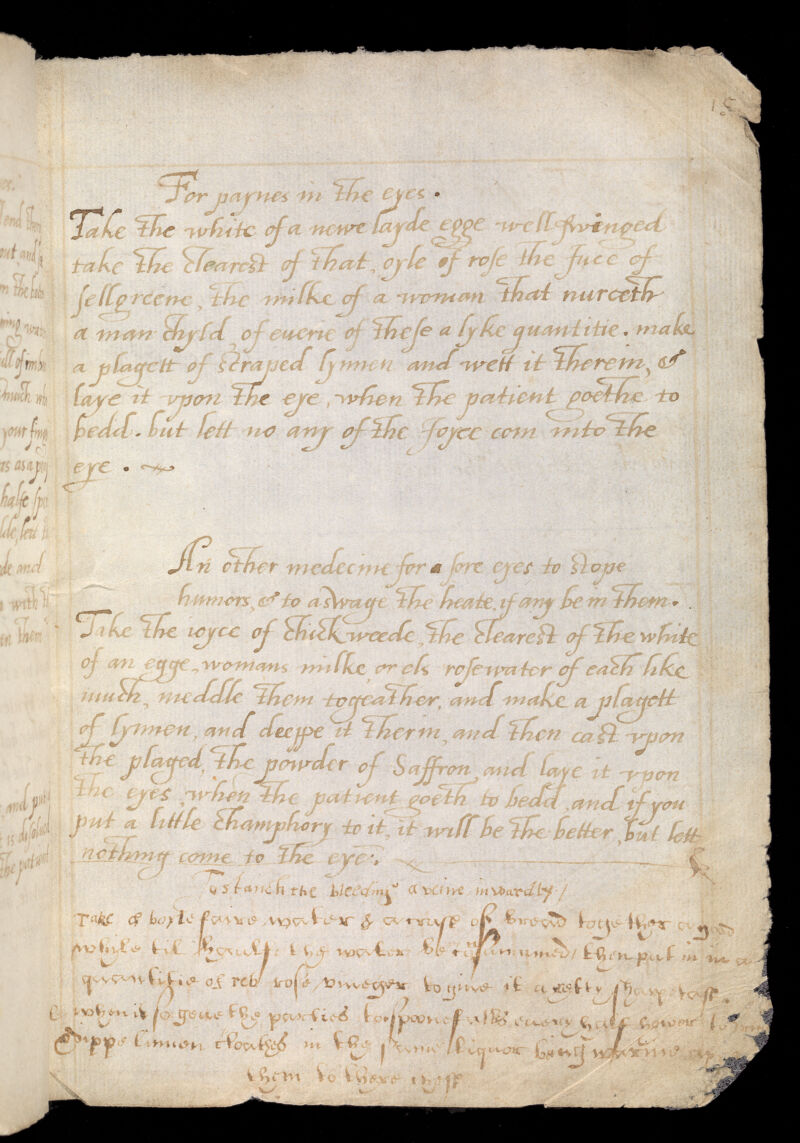 15
For paynes in the eyes.
Take the white of a newe layde egge well swinged
take the clearest of that, oyle of rose the Juce of
sellgreene, the milke of a woman that nurceth
a man chyld, of euerie of these a lyke quantitie. make
a plagett of scraped lynnen and wett it therein, &
laye it vpon the eye, when the patient goethe to
bedd. but lett no any of the Joyce com into the
eye.
An other medecine for a sore eyes to stope
humors, & to aswage the heate, if any be in them.
Take the ioyce of chickweede, the clearest of the white
of an egge, womans milke, or els rosewater of each like
much, meddle them togeather, and make a plagett
of lynnen, and deeppe it therin, and then cast vpon
the plaged, the powder of Saffron, and laye it vpon
the eyes, when the patient goeth to bedd, and if you
put a little champhory to it, it will be the better, but lett
nothing come to the eye.
To stanch the bleeding a veine inwardly
Take & boyle faire water & a cruse of bread together a good
while til halfe the water be consummed, then put in
quantitie of red rose vineger to giue it a pretty sharpe tast.
when it so geue the parties spoonefulls euery half hower
& dippe linnen cloathes in the same liquor being warme
them to there